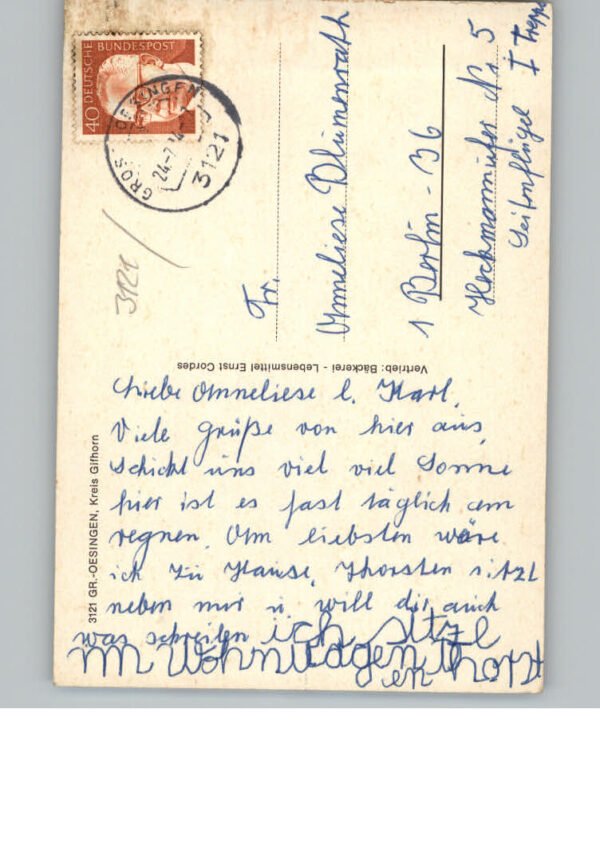 40 DEUTSCHE BUNDESPOST
OESINGEN
3121
3121
Fr.
Anneliese Blumenrath
1 Berlin - 36
Heckmannufer Nr. 5
Seitenflügel I Treppe
Vertrieb: Bäckerei - Lebensmittel Ernst Cordes
3121 GR.-OESINGEN, Kreis Gifhorn
Liebe Anneliese l. Karl,
Viele Grüße von hier aus,
schickt uns viel viel Sonne
hier ist es fast täglich am
regnen. Am liebsten wäre
ich zu Hause, Thorsten sitzt
neben mir u. will dir auch
was schreiben ich sitze
im Wohnwagen thorst
en